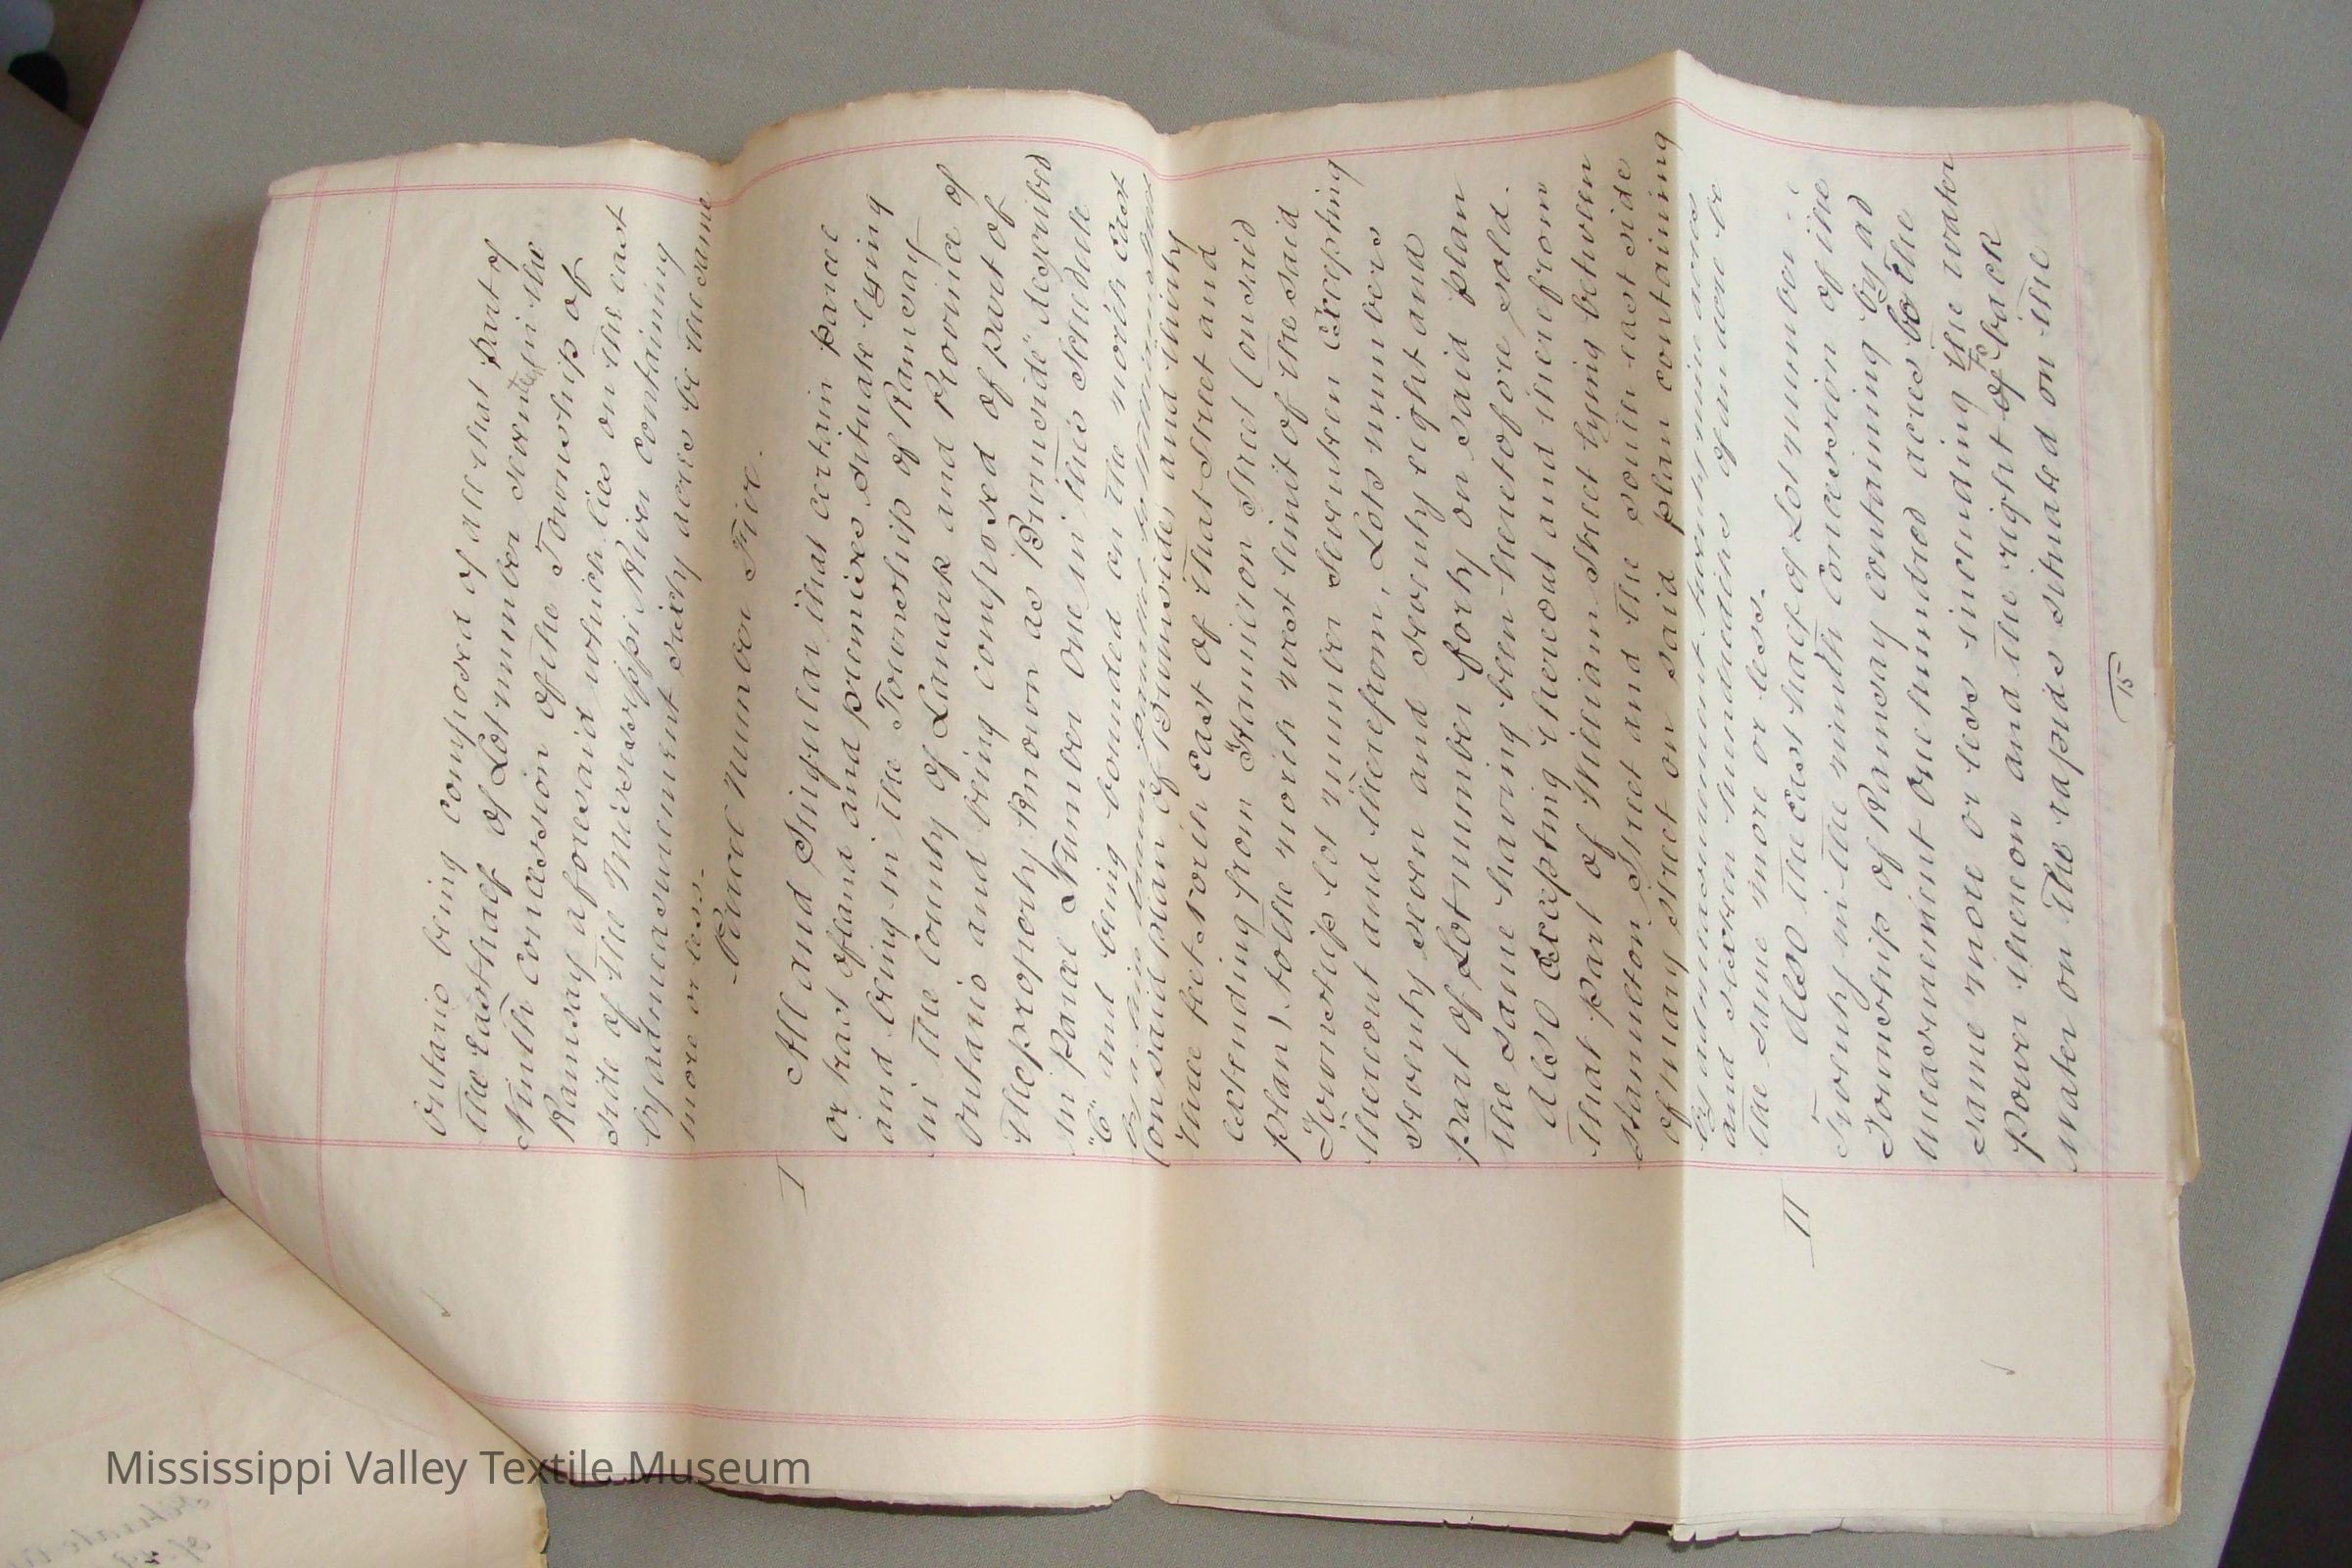 Ontario being composed of all that part of
the East half of Lot number seventeen in the
Ninth concession of the Township of
Ramsay aforesaid which lies on the east
side of the Mississippi River containing
by admeasurement sixty acres be the same
more or less.
Parcel Number Five.
I All and Singular that certain parcel
or tract of land and premises situate lying
and being in the Township of Ramsay
in the County of Lanark and Province of
Ontario and being composed of part of
the property known as "Burnside" described
in Parcel Number One in this Schedule
"C" and being bounded on the north East
by a line drawn parallel to Hamilton Street
(on said plan of Burnside) and thirty
three feet North East of that Street and
extending from Hamilton Street (on said
plan) to the north west limit of the said
Township lot number seventeen excepting
thereout and therefrom, Lots numbers
seventy seven and seventy eight and
part of Lot number forty on said plan
the same having been heretofore sold.
Also Excepting thereout and therefrom
that part of William Street lying between
Hamilton Street and the south east side
of Mary Street on said plan containing
by admeasurement twenty nine acres
and sixteen hundredths of an acre be
the same more or less.
II Also the East half of Lot number
Twenty in the ninth Concession of the
Township of Ramsay containing by ad
measurement One hundred acres be the
same more or less including the water
power thereon and the right to back
water on the rapids situated on the
15
Mississippi Valley Textile Museum